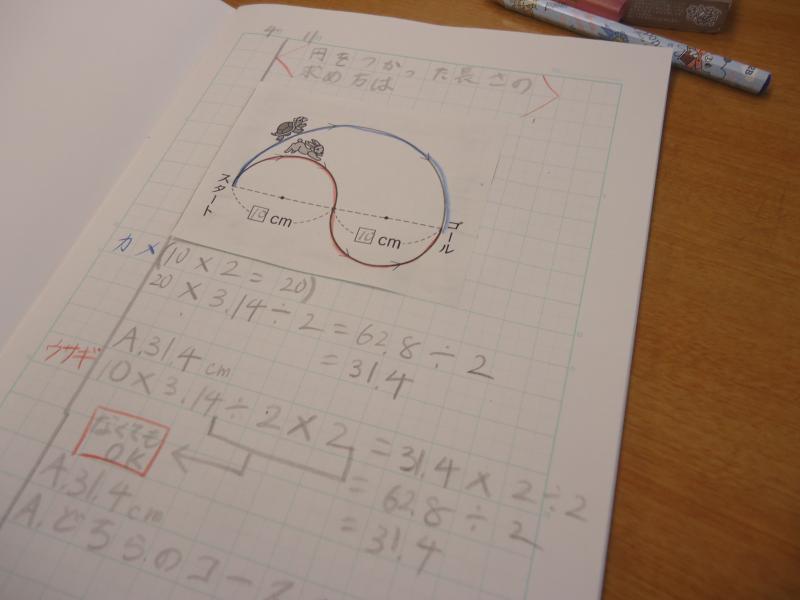 4 11
円をつかった長さの
求め方は
スタート
10 cm
10 cm
ゴール
カメ (10×2=20)
20×3.14÷2=62.8÷2
=31.4
A.31.4cm
ウサギ 10×3.14÷2×2=31.4×2÷2
=62.8÷2
=31.4
なくても
OK
A.31.4cm
A.どちらのコース